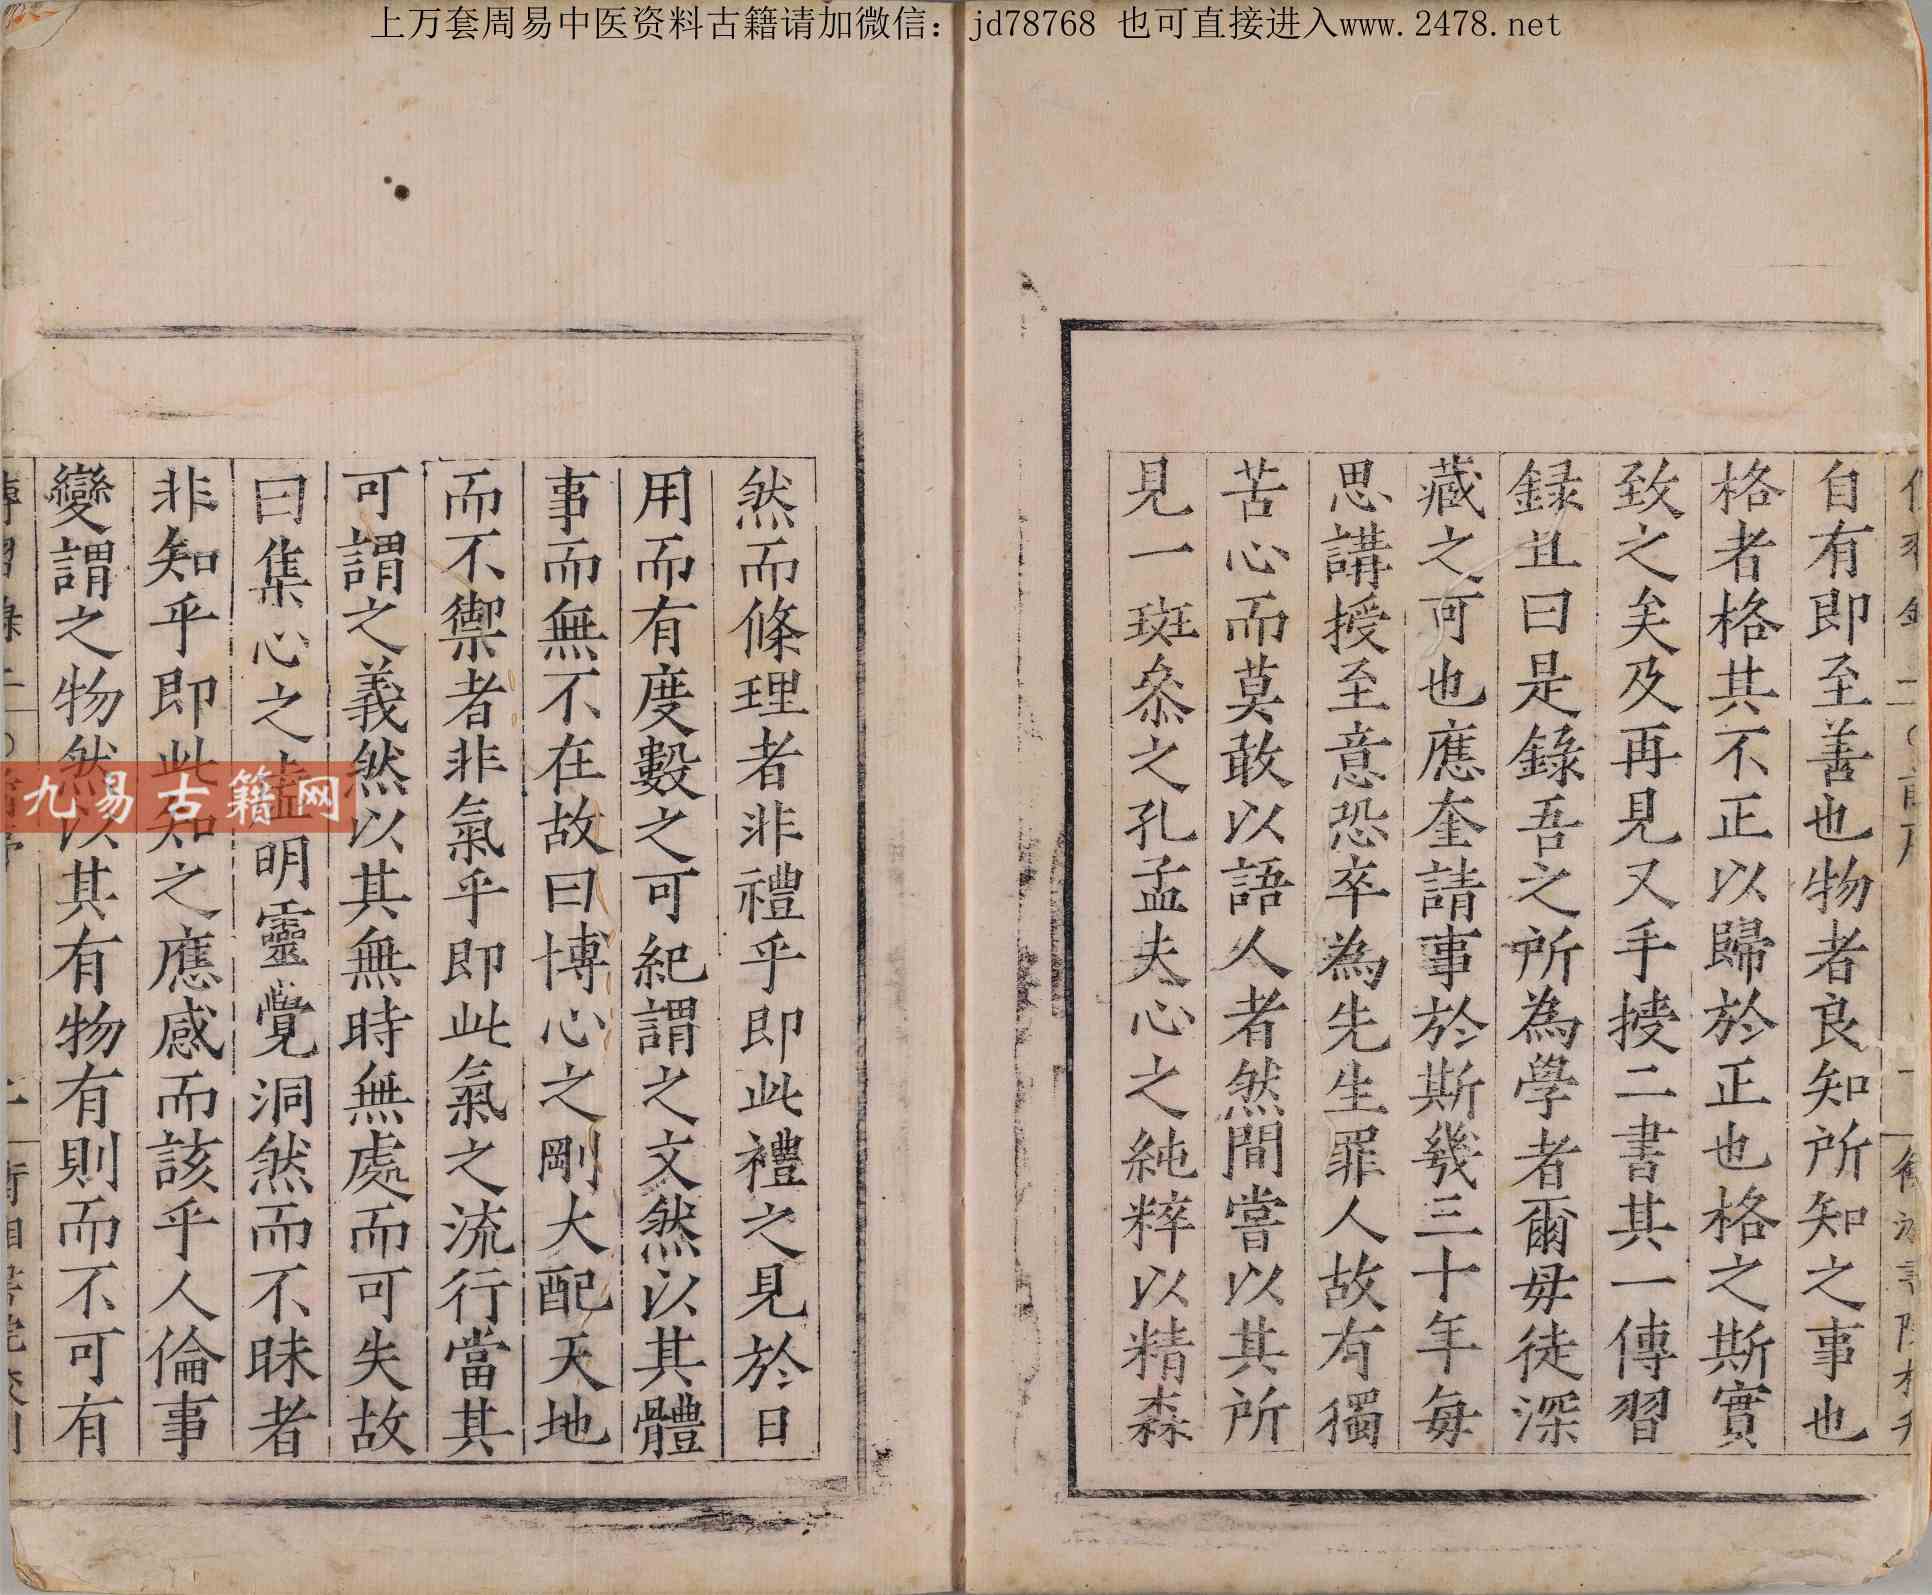 上万套周易中医资料古籍请加微信：jd78768 也可直接进入www.2478.net
自有即至善也物者良知所知之事也
格者格其不正以歸於正也格之斯實
致之矣及再見又手授二書其一傳習
録且曰是錄吾之所為學者爾毋徒深
藏之可也應奎請事於斯幾三十年每
思講授至意恐卒為先生罪人故有獨
苦心而莫敢以語人者然間嘗以其所
見一斑叅之孔孟夫心之純粹以精森
然而條理者非禮乎即此禮之見於日
用而有度數之可紀謂之文然以其體
事而無不在故曰博心之剛大配天地
而不禦者非氣乎即此氣之流行當其
可謂之義然以其無時無處而可失故
曰集心之虛明靈覺洞然而不昧者
非知乎即此知之應感而該乎人倫事
變謂之物然以其有物有則而不可有
九易古籍网